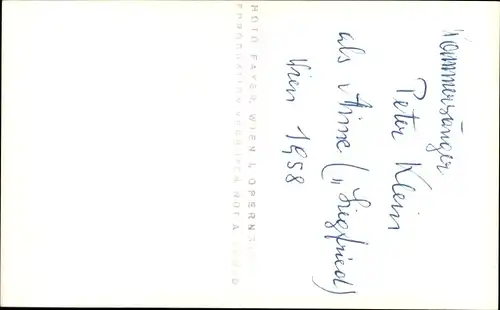 Kammersänger
Peter Klein
als Mime („Siegfried)
Wien 1958
PHOTO FAYER, WIEN I, OPERNR
REPRODUKTION VERBOTEN